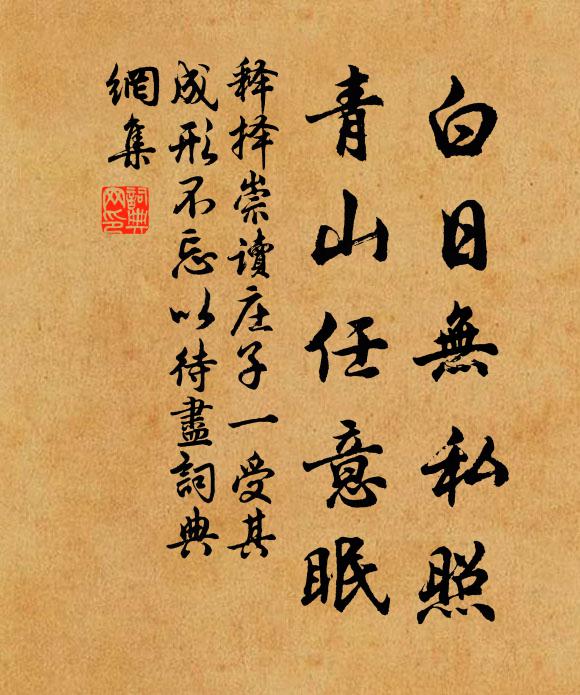 白日無私照
青山任意眠
释择崇讀庄子一受其
成形不忘以待盡詞典
網集
詞典
网印